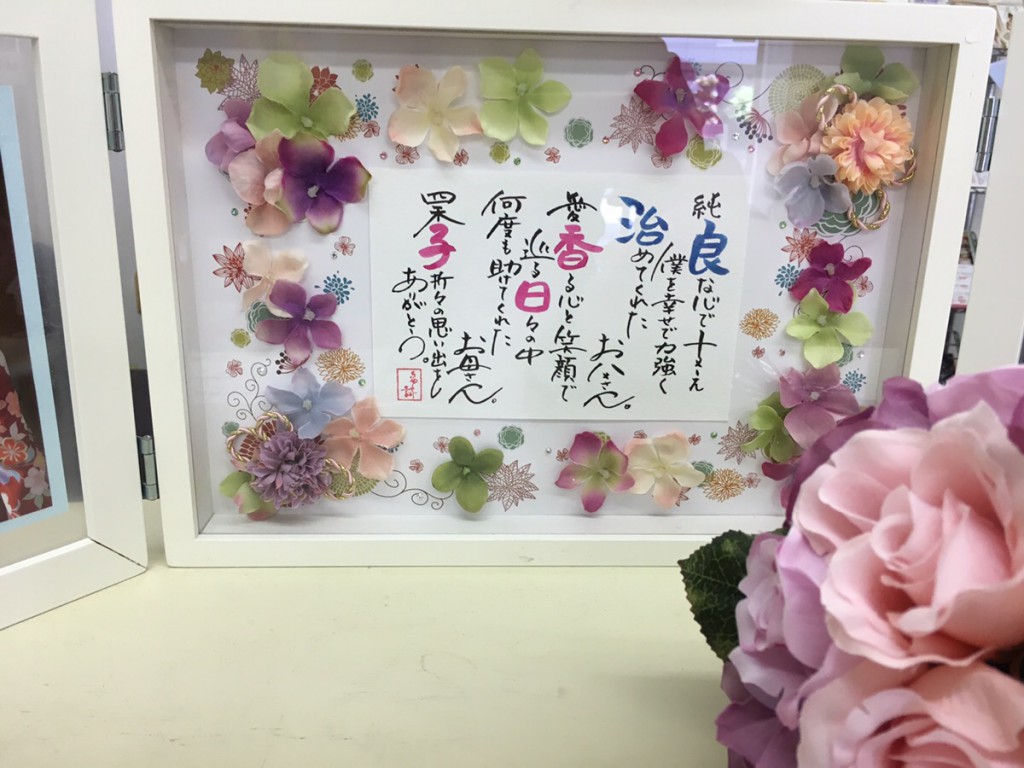 純良な心でささえ
僕を幸せで力強く
治めてくれた
お父さん。
愛香る心と笑顔で
巡る日々の中
何度も助けてくれた
お母さん。
四季折々の思い出を
ありがとう。